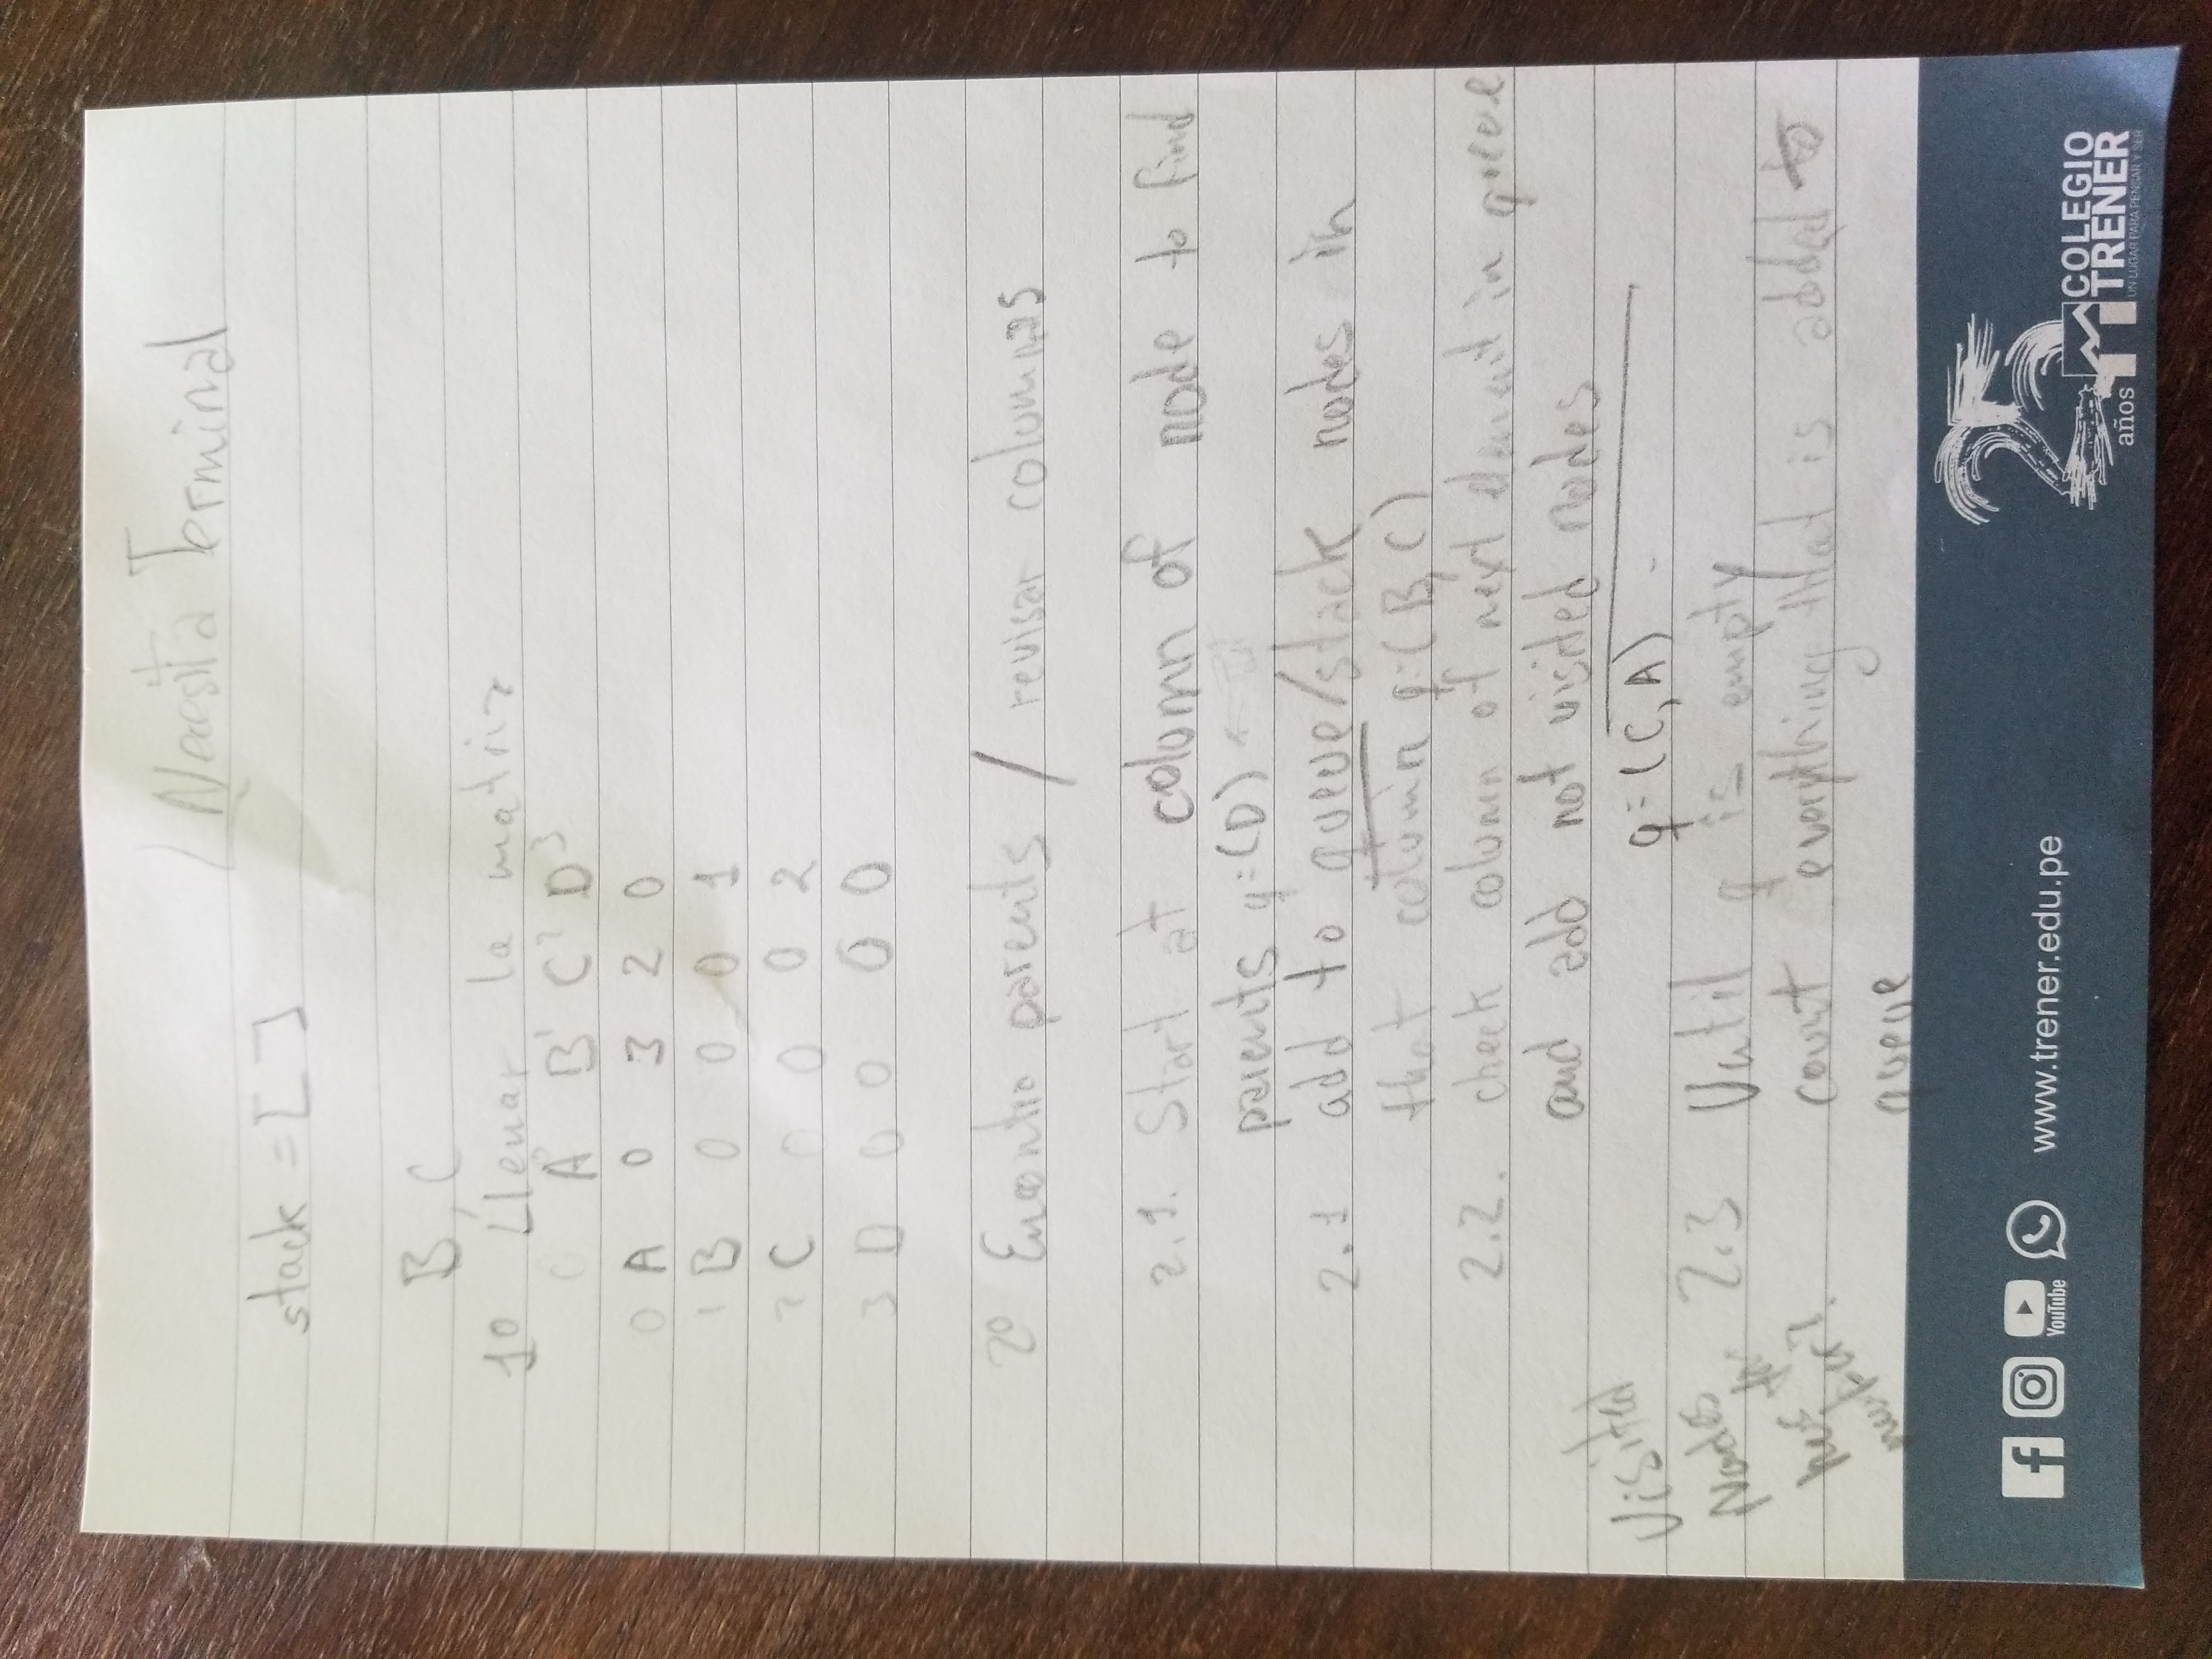 Necesita Terminal
stack = [ ]
B, C
1º Llenar la matriz
0 A⁰ B¹ C² D³
0 A 0 3 2 0
1 B 0 0 0 1
2 C 0 0 0 2
3 D 0 0 0 0
2º Encontra parents / revisar columnas
2.1. Start at column of node to find
parents q=(D) ←
2.1 add to queue/stack nodes in
that column q=(B, C)
2.2. check column of next element in queue
and add not visited nodes
q=(C, A)
2.3 Until q is empty
count everything that is added to
queue
Visited
Nodes
YouTube
www.trener.edu.pe
25
años
COLEGIO
TRENER
UN LUGAR PARA PENSAR Y SER